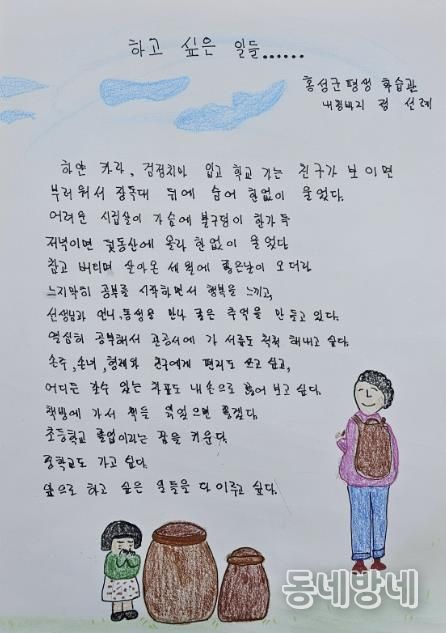 하고 싶은 일들......
홍성군 평생 학습관
선례
하얀 카라, 검정치마 입고 학교 가는 친구가 보이면
부러워서 장독대 뒤에 숨어 한없이 울었다.
어려운 시집살이 가슴에 불구덩이 한가득
저녁이면 뒷동산에 올라 한없이 울었다
참고 버티며 살아온 세월에 좋은날이 오더라
느지막히 공부를 시작하면서 행복을 느끼고,
선생님과 언니, 동생을 만나 좋은 추억을 만들고 있다.
열심히 공부해서 관공서에 가 서류도 척척 해내고 싶다.
손주, 손녀, 형제와 친구에게 편지도 쓰고 싶고,
어디든 갈수 있는 차표도 내 손으로 끊어 보고 싶다.
책방에 가서 책을 읽었으면 좋겠다.
초등학교 졸업이라는 꿈을 키운다.
중학교도 가고 싶다.
앞으로 하고 싶은 일들을 다 이루고 싶다.
동네방네